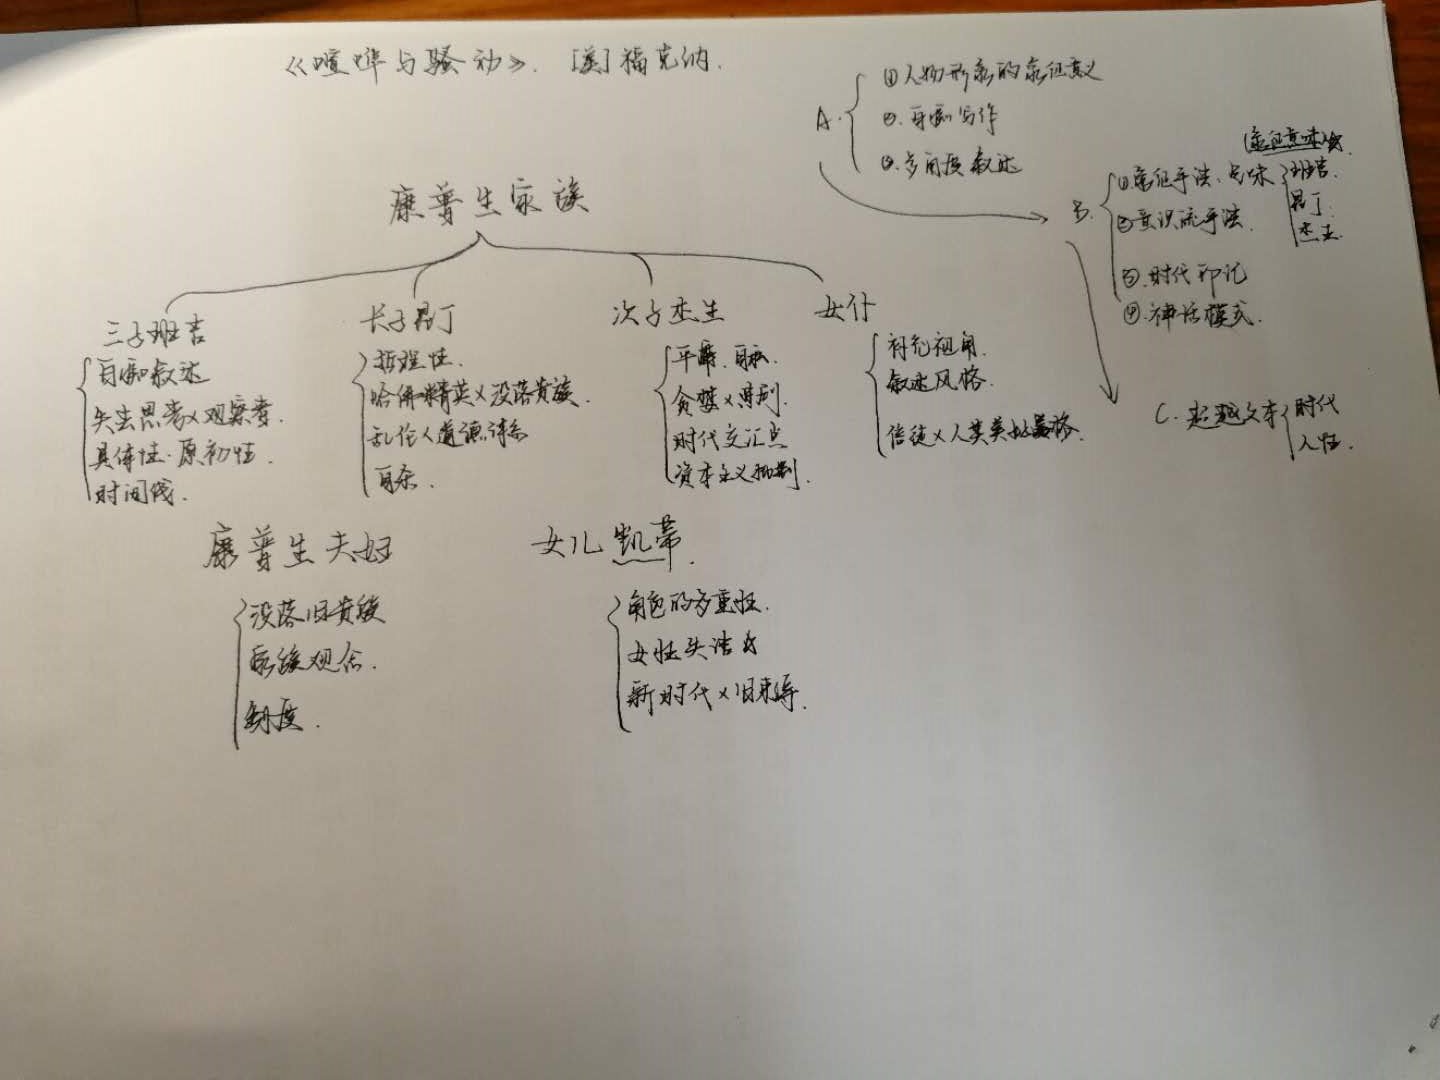 《喧哗与骚动》. [美]福克纳.
A.
①人物形象的象征意义
②.白痴写作
③.多角度叙述
B.
①象征手法、
班吉.
昆丁.
杰生.
②意识流手法.
③.时代印记
④.神话模式.
C.超越文本
时代
人性.
康普生家族
三子班吉
白痴叙述
失去思考×观察者.
具体性·原初性.
时间线.
长子昆丁
哲理性.
哈佛精英×没落贵族.
乱伦×道德
自杀.
次子杰生
平庸.自私.
贪婪×
时代交汇点
资本主义批判.
女仆
补充视角.
叙述风格.
信徒×人类美好品格.
康普生夫妇
没落旧贵族
家族观念.
制度.
女儿凯蒂.
角色的多重性.
女性失语
新时代×旧秩序.